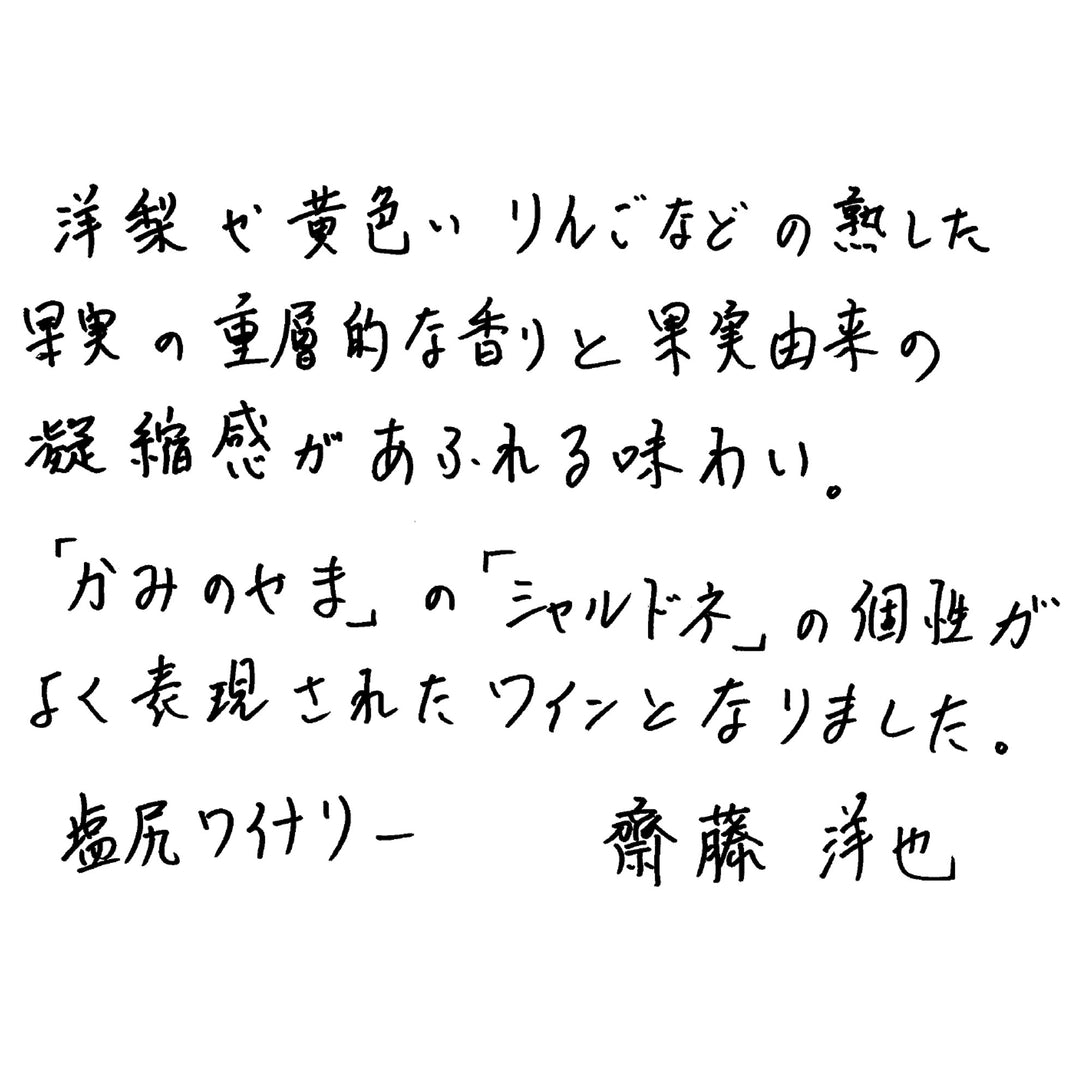 洋梨や黄色いりんごなどの熟した
果実の重層的な香りと果実由来の
凝縮感があふれる味わい。
「かみのやま」の「シャルドネ」の個性が
よく表現されたワインとなりました。
塩尻ワイナリー 齋藤 洋也